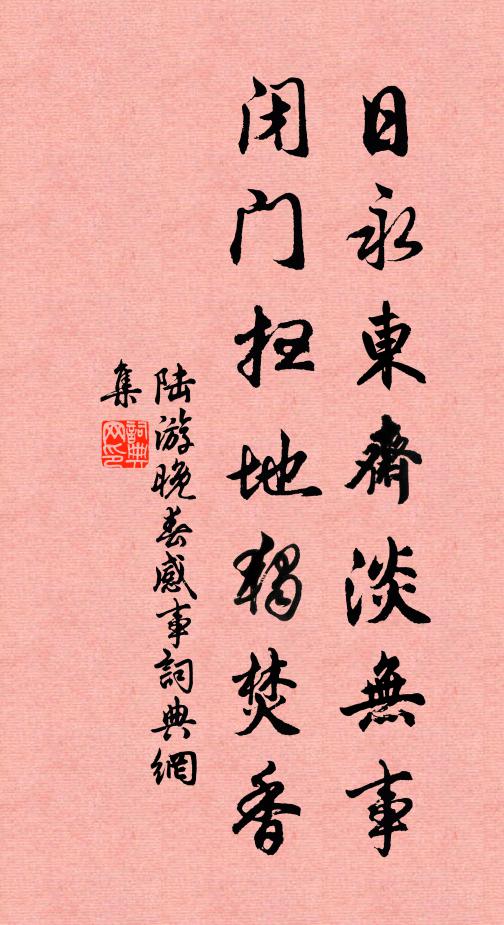 日永東齋淡無事
闭门扫地独焚香
陆游晚春感事詞典網
集
詞典网印